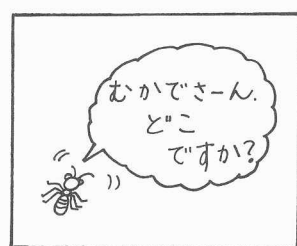 むかでさーん.
どこ
ですか?